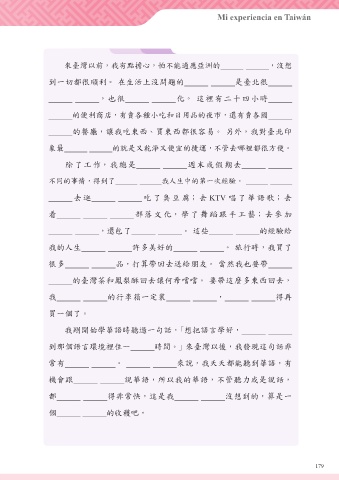 Mi experiencia en Taiwán
來臺灣以前，我有點擔心，怕不能適應亞洲的______ ______，沒想
到一切都很順利。 在生活上沒問題的______ ______是臺北很______
______ ______，也很______ ______化。 這裡有二十四小時______
______的便利商店，有賣各種小吃和日用品的夜市，還有賣各國______
______的餐廳，讓我吃東西、買東西都很容易。 另外，我對臺北印
象最______ ______的就是又乾淨又便宜的捷運，不管去哪裡都很方便。
除了工作，我總是______ ______週末或假期去______ ______
不同的事情，得到了______ ______我人生中的第一次經驗。 ______ ______
______去逛______ ______吃了臭豆腐；去 KTV 唱了華語歌；去
看______ ______ ______部落文化，學了舞蹈跟手工藝；去參加
______ ______，還包了______ ______。 這些______ ______的經驗給
我的人生______ ______許多美好的______ ______。 旅行時，我買了
很多______ ______品，打算帶回去送給朋友。 當然我也要帶______
______的臺灣茶和鳳梨酥回去讓何希嚐嚐。 要帶這麼多東西回去，
我______ ______的行李箱一定裝______ ______，______ ______得再
買一個了。
我剛開始學華語時聽過一句話，「想把語言學好，______ ______
到那個語言環境裡住一______時間。」來臺灣以後，我發現這句話非
常有______ ______。 ______ ______來說，我天天都能聽到華語，有
機會跟______ ______說華語，所以我的華語，不管聽力或是說話，
都______ ______得非常快，這是我______ ______沒想到的，算是一
個______ ______的收穫吧。
179